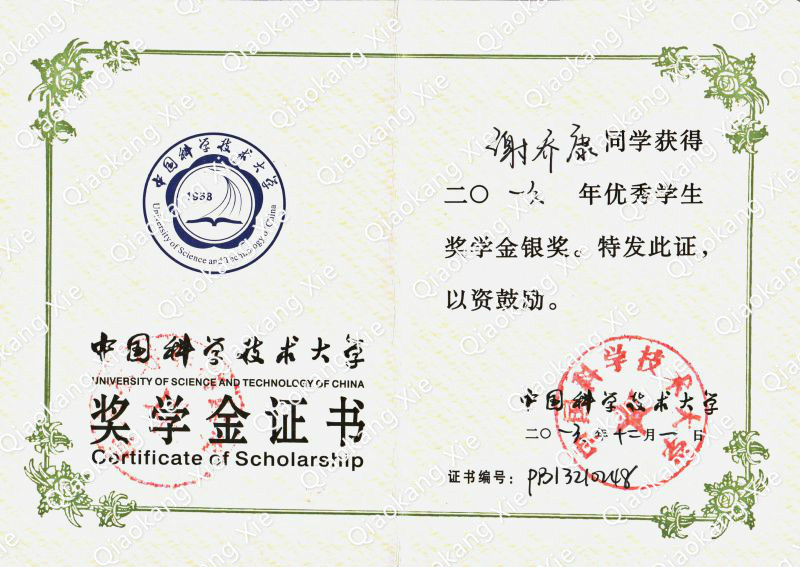 中国科学技术大学
1958
University of Science and Technology of China
中国科学技术大学
UNIVERSITY OF SCIENCE AND TECHNOLOGY OF CHINA
奖学金证书
Certificate of Scholarship
谢乔康同学获得
二〇一 年优秀学生
奖学金银奖。特发此证，
以资鼓励。
中国科学技术大学
二〇一 年十二月一日
证书编号：PB13210248
中国科学技术大学
Qiaokang Xie